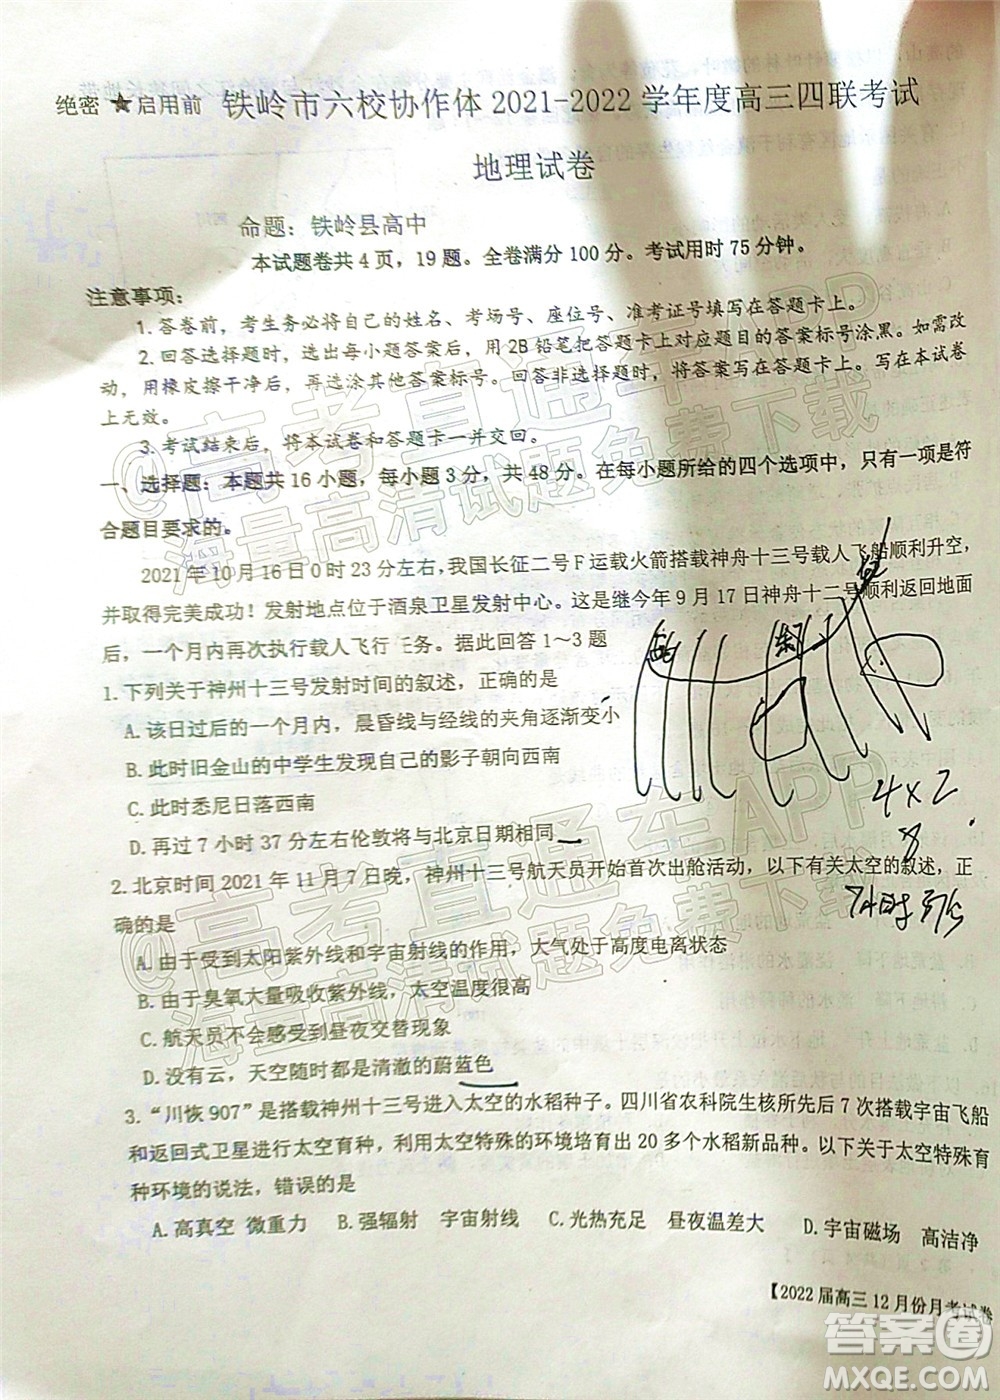 绝密★启用前 铁岭市六校协作体2021-2022学年度高三四联考试
地理试卷
命题：铁岭县高中
本试题卷共4页，19题。全卷满分100分。考试用时75分钟。
注意事项：
1.答卷前，考生务必将自己的姓名、考场号、座位号、准考证号填写在答题卡上。
2.回答选择题时，选出每小题答案后，用2B铅笔把答题卡上对应题目的答案标号涂黑。如需改
动，用橡皮擦干净后，再选涂其他答案标号。回答非选择题时，将答案写在答题卡上。写在本试卷
上无效。
3.考试结束后，将本试卷和答题卡一并交回。
一、选择题：本题共16小题，每小题3分，共48分。在每小题所给的四个选项中，只有一项是符
合题目要求的。
2021年10月16日0时23分左右，我国长征二号F运载火箭搭载神舟十三号载人飞船顺利升空，
并取得完美成功！发射地点位于酒泉卫星发射中心。这是继今年9月17日神舟十二号顺利返回地面
后，一个月内再次执行载人飞行任务。据此回答1～3题
1.下列关于神州十三号发射时间的叙述，正确的是
A.该日过后的一个月内，晨昏线与经线的夹角逐渐变小
B.此时旧金山的中学生发现自己的影子朝向西南
C.此时悉尼日落西南
D.再过7小时37分左右伦敦将与北京日期相同
4×2
8
2.北京时间2021年11月7日晚，神州十三号航天员开始首次出舱活动，以下有关太空的叙述，正
确的是
A.由于受到太阳紫外线和宇宙射线的作用，大气处于高度电离状态
B.由于臭氧大量吸收紫外线，太空温度很高
C.航天员不会感受到昼夜交替现象
D.没有云，天空随时都是清澈的蔚蓝色
3.“川恢907”是搭载神州十三号进入太空的水稻种子。四川省农科院生核所先后7次搭载宇宙飞船
和返回式卫星进行太空育种，利用太空特殊的环境培育出20多个水稻新品种。以下关于太空特殊育
种环境的说法，错误的是
A.高真空 微重力 B.强辐射 宇宙射线 C.光热充足 昼夜温差大 D.宇宙磁场 高洁净
【2022届高三12月份月考试卷
@高考直通车APP
海量高清试题免费下载
@高考直通车APP
海量高清试题免费下载
答案圈
MXQE.COM